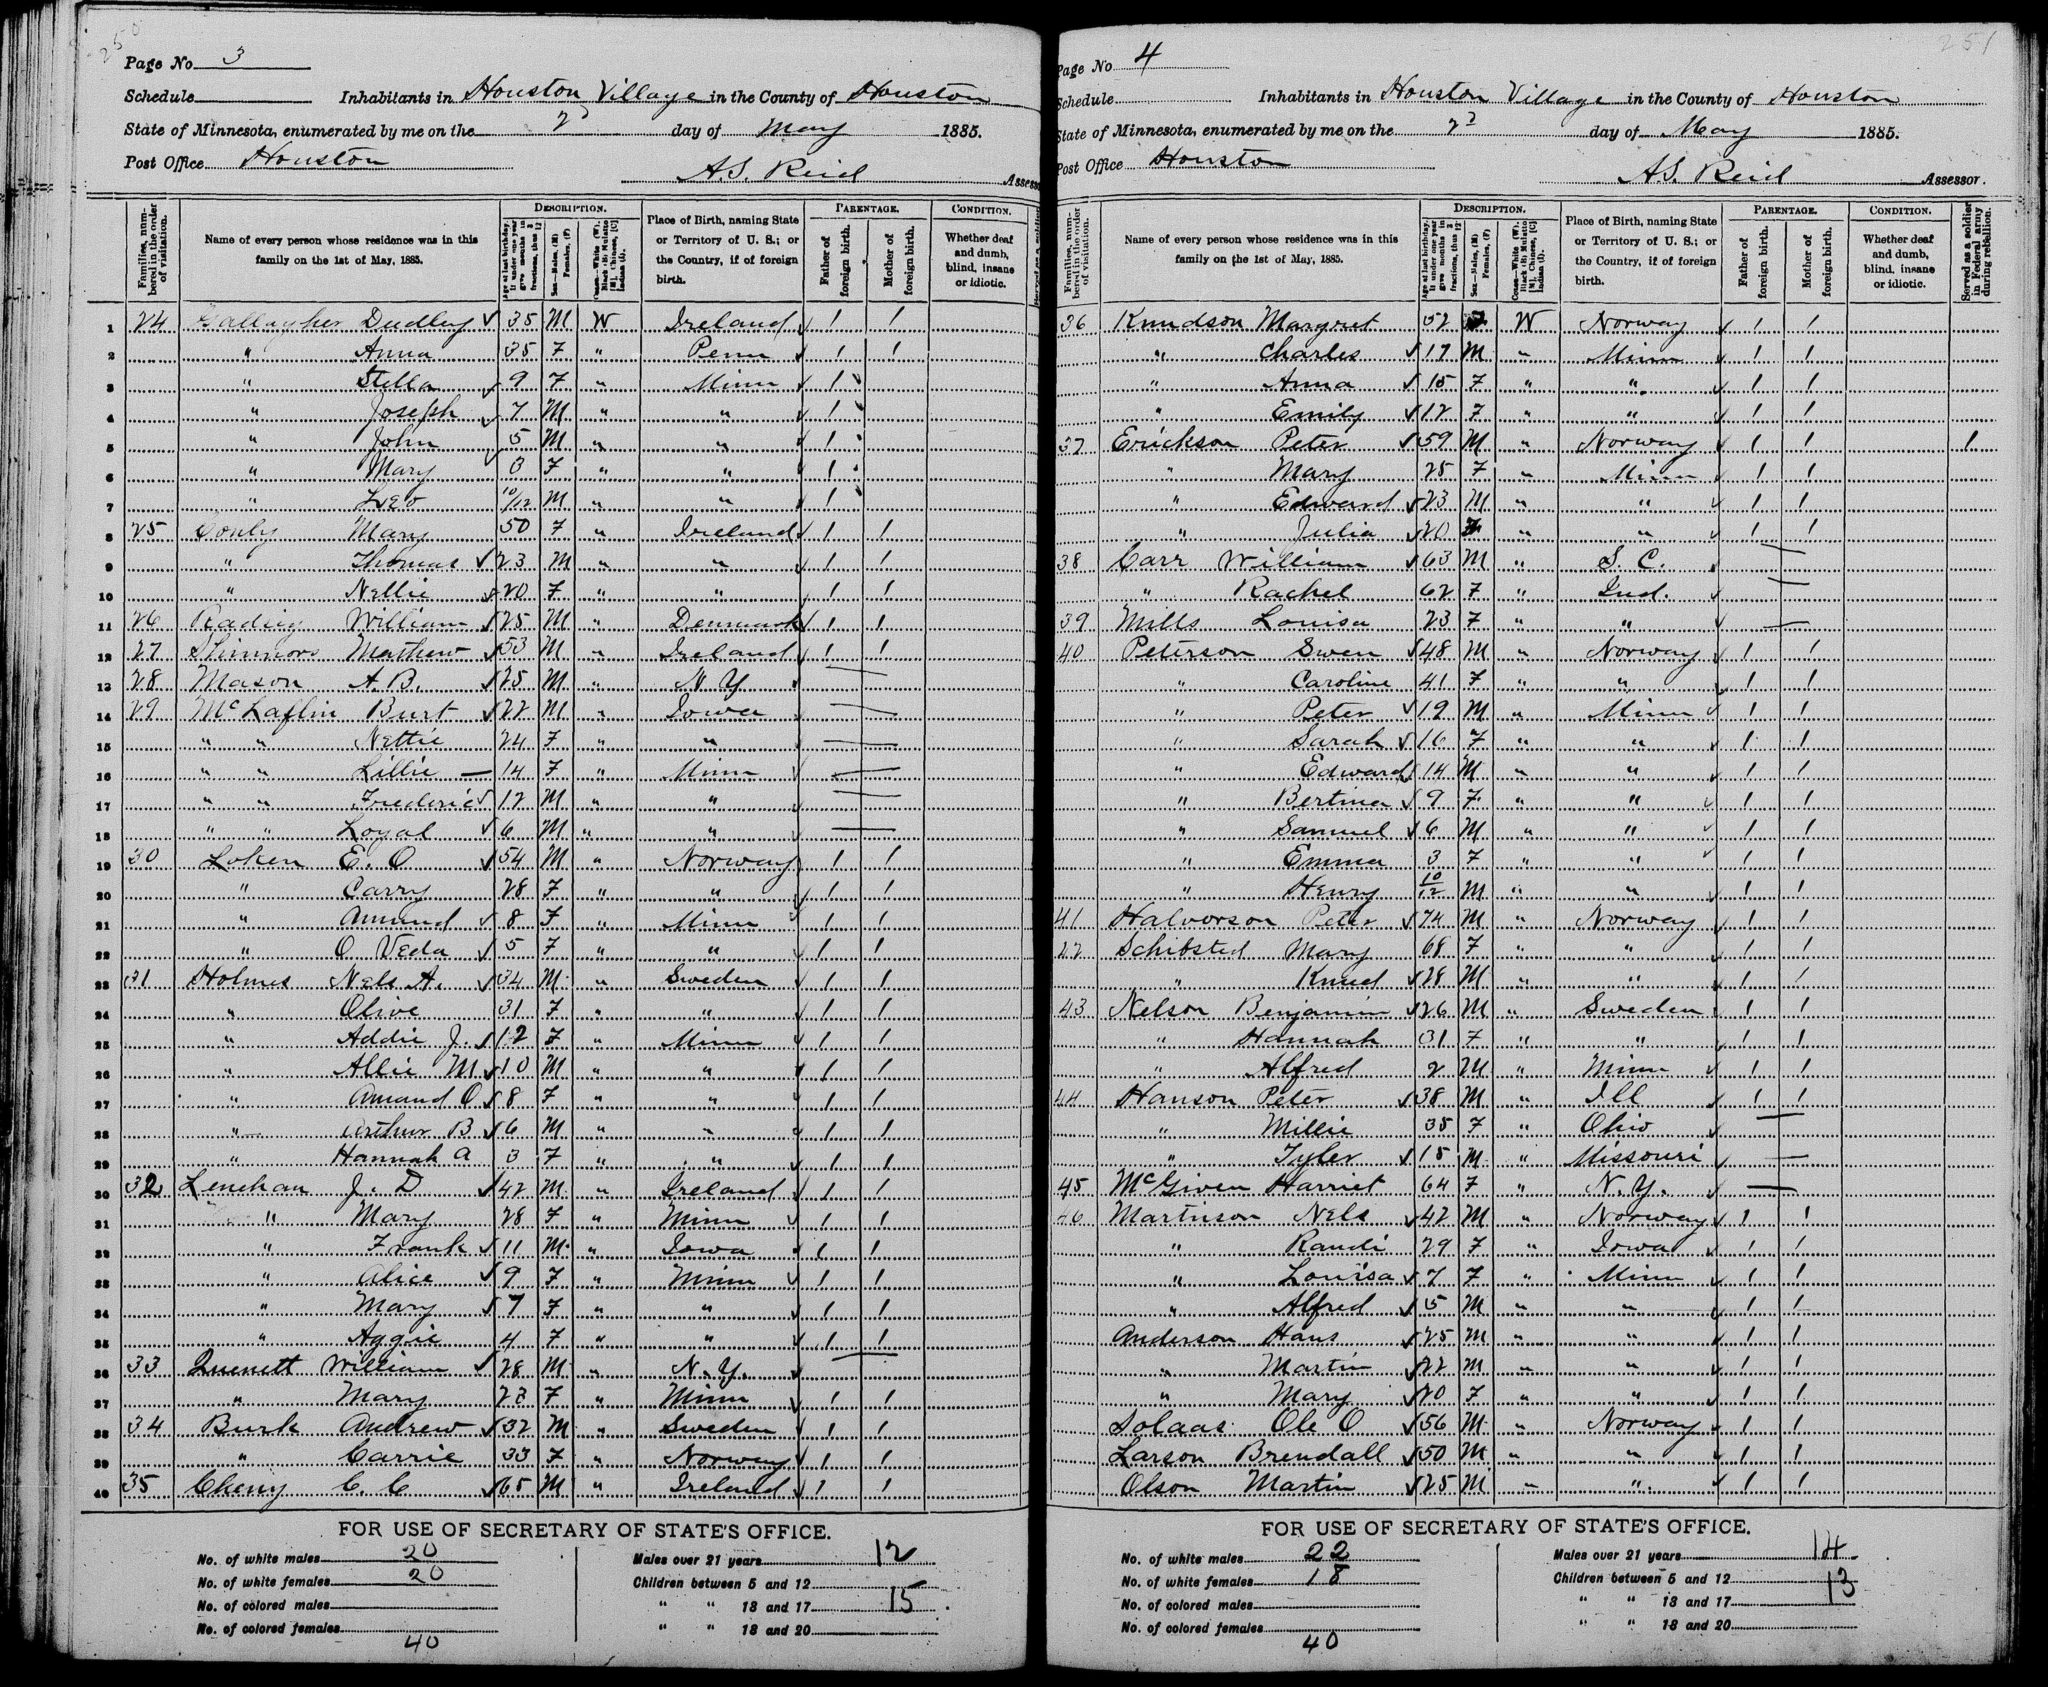 250
Page No 3
Schedule Inhabitants in Houston Village in the County of Houston
State of Minnesota, enumerated by me on the 2d day of May 1885.
Post Office Houston
A.S. Reid Assessor
Families, numbered in the order of visitation.
Name of every person whose residence was in this family on the 1st of May, 1885.
DESCRIPTION.
Place of Birth, naming State or Territory of U. S.; or the Country, if of foreign birth.
PARENTAGE.
Father of foreign birth.
Mother of foreign birth.
CONDITION.
Whether deaf and dumb, blind, insane or idiotic.
1 24 Gallagher Dudley 35 M W Ireland 1 1
2 " Anna 35 F " Penn 1 1
3 " Stella 9 F " Minn 1
4 " Joseph 7 M " " 1
5 " John 5 M " " 1
6 " Mary 3 F " " 1
7 " Leo 10/12 M " " 1
8 25 Conly Mary 50 F " Ireland 1 1
9 " Thomas 23 M " " 1 1
10 " Nellie 20 F " " 1 1
11 26 William 25 M " Denmark 1 1
12 27 Mathew 53 M " Ireland 1 1
13 28 Mason A. B. 25 M " N Y —
14 29 McLaflin Burt 22 M " Iowa —
15 " " Nettie 24 F " " —
16 " " Lillie — 14 F " Minn —
17 " " Frederic 12 M " " —
18 " " Loyal 6 M " " —
19 30 Loken E. O 54 M " Norway 1 1
20 " Carry 28 F " " 1 1
21 " Amund 8 F " Minn 1 1
22 " O Veda 5 F " " 1 1
23 31 Holmes Nels A. 34 M " Sweden 1 1
24 " Olive 31 F " " 1 1
25 " Addie J. 12 F " Minn 1 1
26 " Allie M 10 M " " 1 1
27 " Amand O 8 F " " 1 1
28 " Arthur B 6 M " " 1 1
29 " Hannah A 3 F " " 1 1
30 32 Lenehan J. D 42 M " Ireland 1 1
31 " Mary 28 F " Minn 1 1
32 " Frank 11 M " Iowa 1 1
33 " Alice 9 F " Minn 1 1
34 " Mary 7 F " " 1 1
35 " Aggie 4 F " " 1 1
36 33 William 28 M " N. Y. —
37 " Mary 23 F " Minn 1 1
38 34 Burk Andrew 32 M " Sweden 1 1
39 " Carrie 33 F " Norway 1 1
40 35 C. C 65 M " Ireland 1 1
FOR USE OF SECRETARY OF STATE'S OFFICE.
No. of white males 20
No. of white females 20
No. of colored males
No. of colored females
40
Males over 21 years 12
Children between 5 and 12
" " 13 and 17 15
" " 18 and 20
251
Page No 4
Schedule Inhabitants in Houston Village in the County of Houston
State of Minnesota, enumerated by me on the 2d day of May 1885.
Post Office Houston
A.S. Reid Assessor.
Families, numbered in the order of visitation.
Name of every person whose residence was in this family on the 1st of May, 1885.
DESCRIPTION.
Place of Birth, naming State or Territory of U. S.; or the Country, if of foreign birth.
PARENTAGE.
Father of foreign birth.
Mother of foreign birth.
CONDITION.
Whether deaf and dumb, blind, insane or idiotic.
Served as a soldier in Federal army during rebellion.
36 Knudson Margret 52 F W Norway 1 1
" Charles 17 M " Minn 1 1
" Anna 15 F " " 1 1
" Emily 12 F " " 1 1
37 Erickson Peter 59 M " Norway 1 1 1
" Mary 25 F " Minn 1 1
" Edward 23 M " " 1 1
" Julia 20 F " " 1 1
38 Carr William 63 M " S. C. —
" Rachel 62 F " Ind. —
39 Mills Louisa 23 F " " —
40 Peterson Swen 48 M " Norway 1 1
" Caroline 41 F " " 1 1
" Peter 19 M " Minn 1 1
" Sarah 16 F " " 1 1
" Edward 14 M " " 1 1
" Bertina 9 F " " 1 1
" Samuel 6 M " " 1 1
" Emma 3 F " " 1 1
" Henry 10/12 M " " 1 1
41 Halvorson Peter 74 M " Norway 1 1
42 Schibsted Mary 68 F " " 1 1
" Knud 28 M " " 1 1
43 Nelson Benjamin 26 M " Sweden 1 1
" Hannah 31 F " " 1 1
" Alfred 2 M " Minn 1 1
44 Hanson Peter 38 M " Ill 1 1
" Millie 35 F " Ohio —
" Tyler 15 M " Missouri —
45 McGiven Harriet 64 F " N. Y. —
46 Martinson Nels 42 M " Norway 1 1
" Randi 29 F " Iowa 1 1
" Louisa 7 F " Minn 1 1
" Alfred 5 M " " 1 1
Anderson Hans 25 M " " 1 1
" Martin 22 M " " 1 1
" Mary 20 F " " 1 1
Solaas Ole O 56 M " Norway 1 1
Larson Brendall 50 M " " 1 1
Olson Martin 25 M " " 1 1
FOR USE OF SECRETARY OF STATE'S OFFICE.
No. of white males 22
No. of white females 18
No. of colored males
No. of colored females
40
Males over 21 years 14
Children between 5 and 12
" " 13 and 17 13
" " 18 and 20